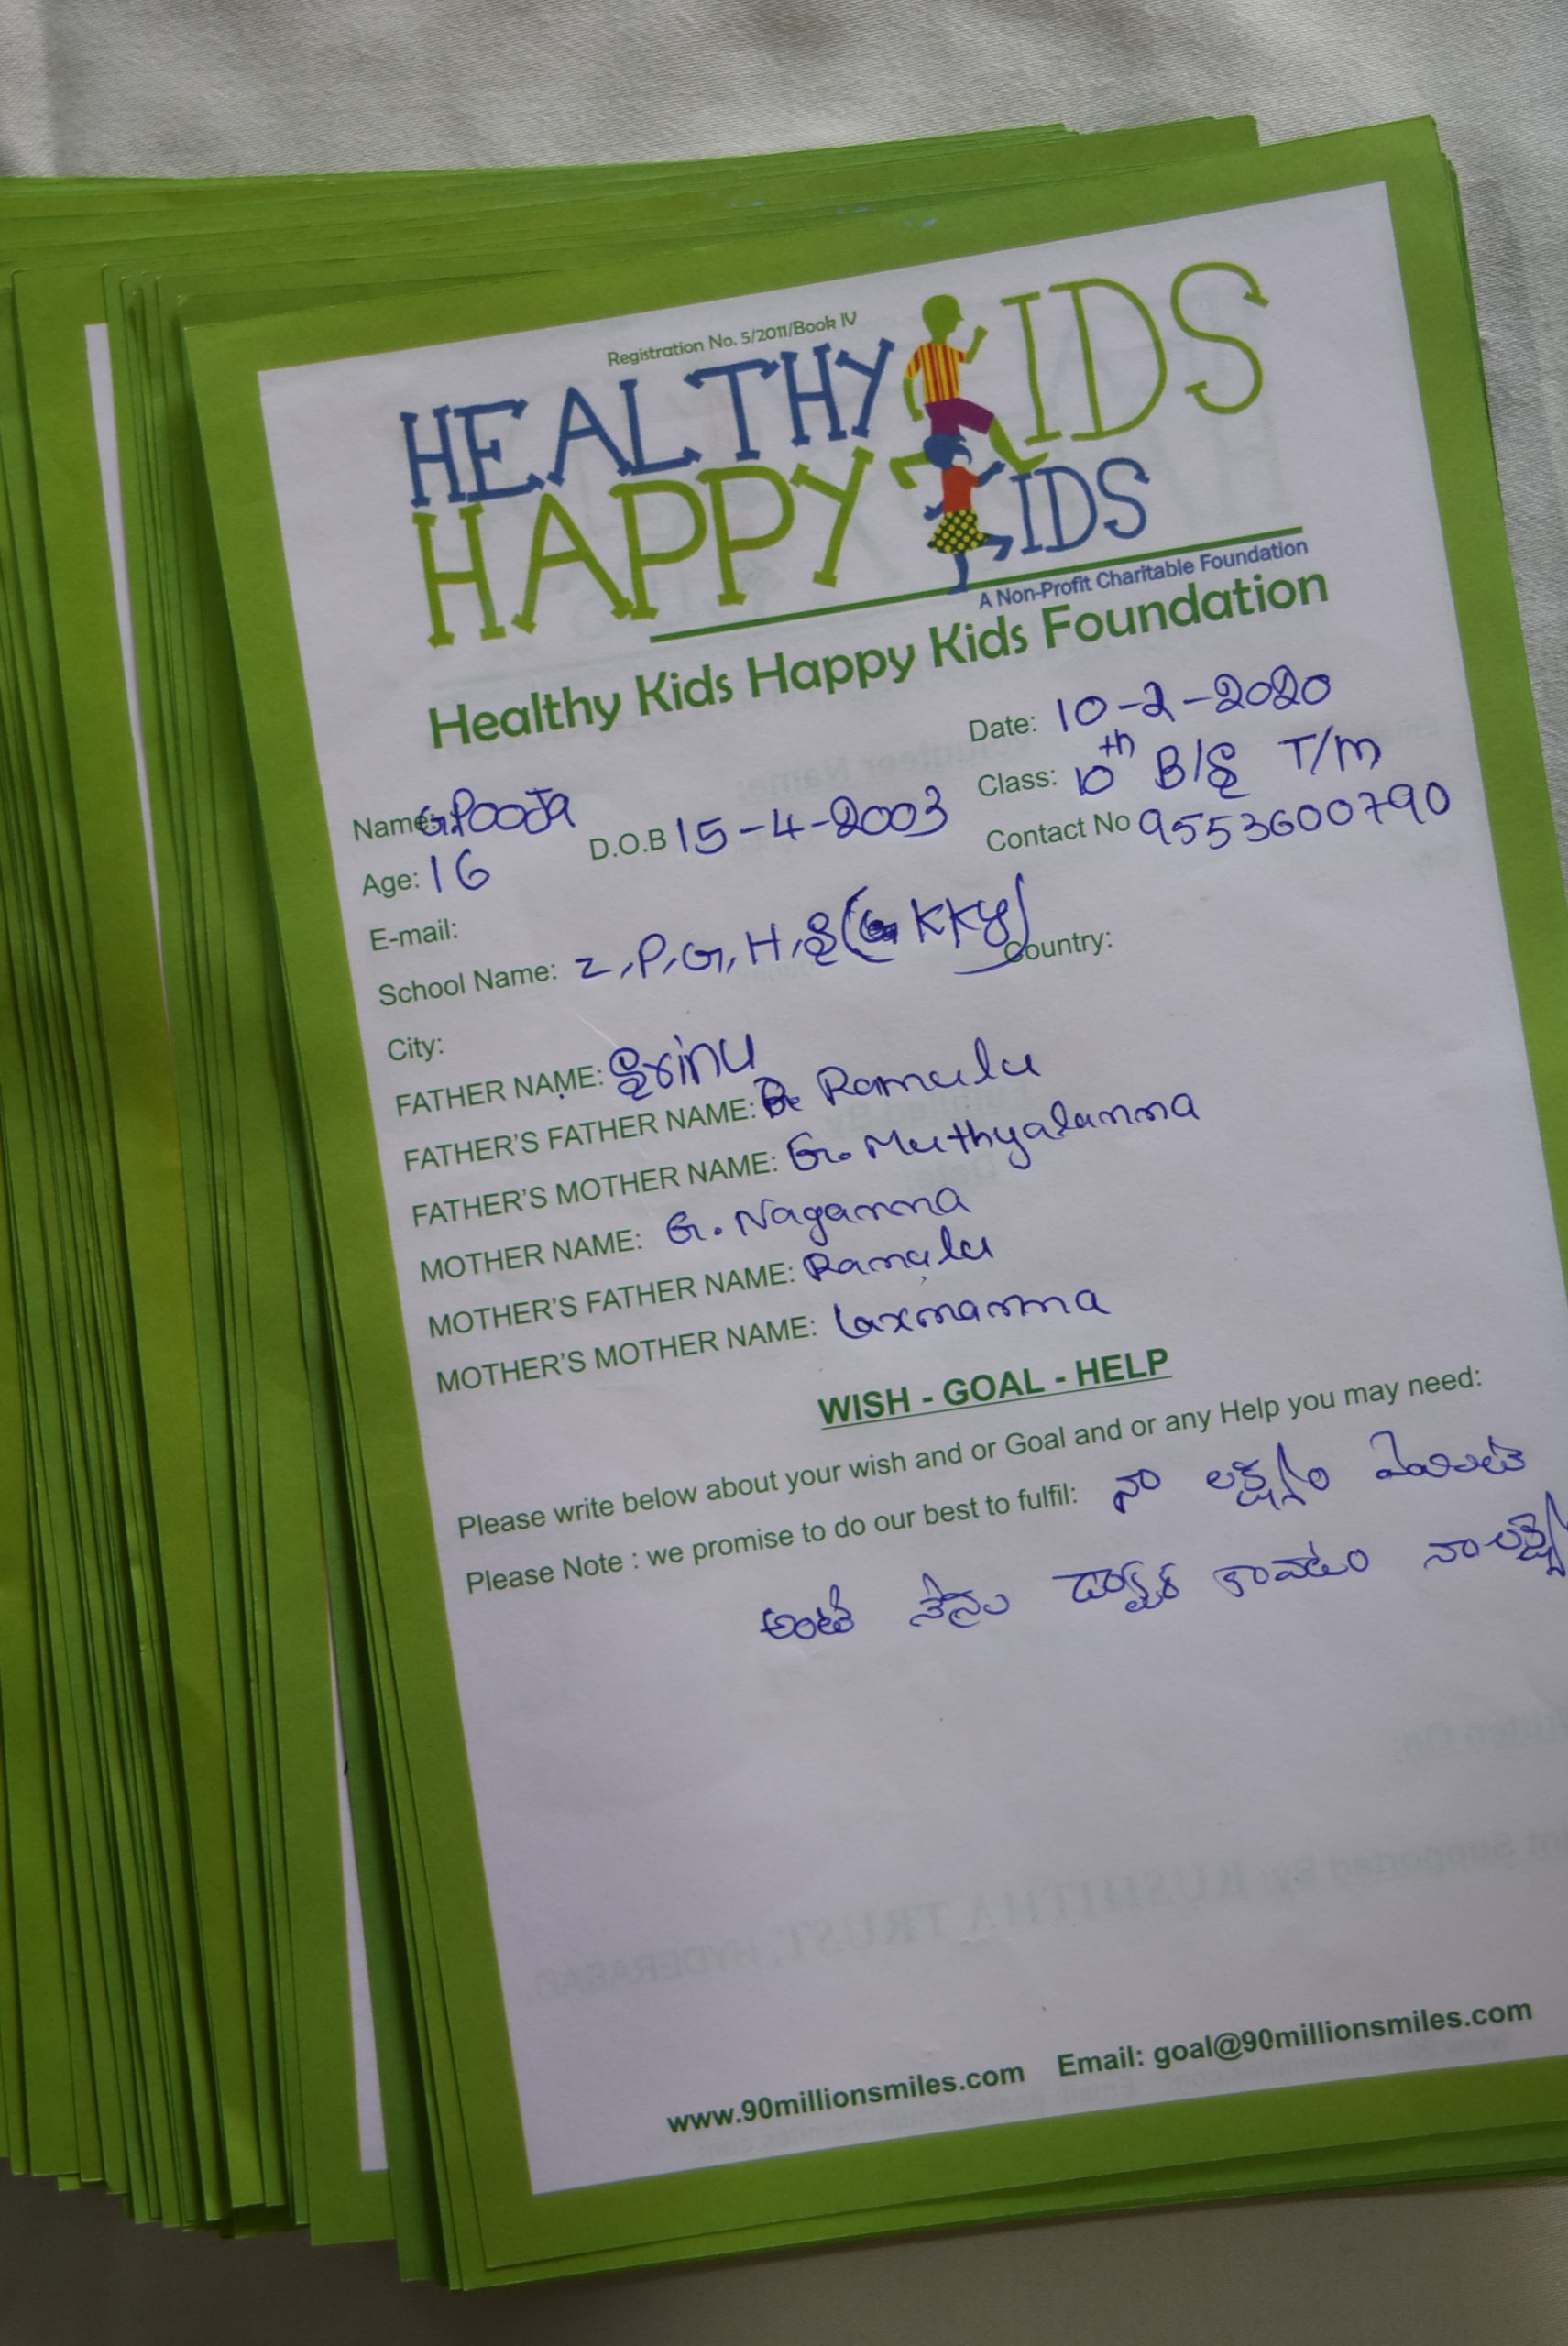 Registration No. 5/2011/Book IV
HEALTHY KIDS
HAPPY KIDS
A Non-Profit Charitable Foundation
Healthy Kids Happy Kids Foundation
Date: 10-2-2020
Name: G.Pooja
Class: 10th B/S T/M
Age: 16
D.O.B 15-4-2003
Contact No 9553600790
E-mail:
School Name: Z,P,G,H,S (KKY)
Country:
City:
FATHER NAME: Srinu
FATHER'S FATHER NAME: Ramulu
FATHER'S MOTHER NAME: G. Muthyalamma
MOTHER NAME: G. Nagamma
MOTHER'S FATHER NAME: Ramulu
MOTHER'S MOTHER NAME: Laxmamma
WISH - GOAL - HELP
Please write below about your wish and or Goal and or any Help you may need:
Please Note : we promise to do our best to fulfil: నా లక్ష్యం ఏమిటి
అంటే నేను డాక్టర్ కావటం నా లక్ష్యం
www.90millionsmiles.com Email: goal@90millionsmiles.com